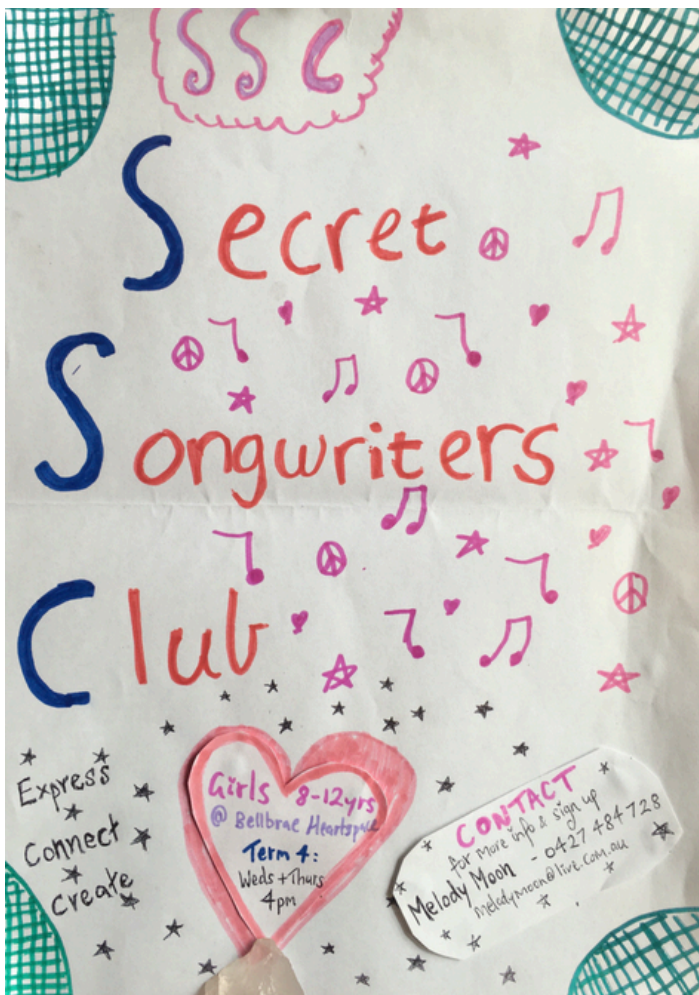 SSC
Secret
Songwriters
Club
Express
Connect
create
Girls 8-12yrs
@ Bellbrae Heartspace
Term 4:
Weds + Thurs
4pm
CONTACT
for more info & sign up
Melody Moon - 0427 484 728
melodymoon@live.com.au